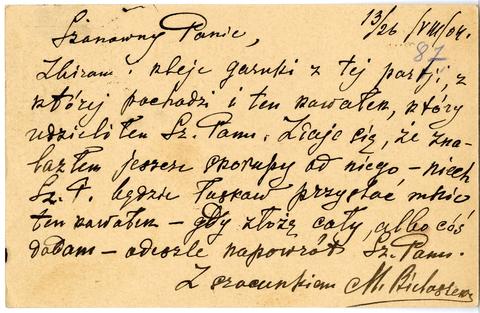 13/26 /VIII/04.
87
Szanowny Panie,
Zbieram i kleję garnki z tej partji, z
której pochodzi i ten kawałek, który
udzieliłem Sz. Panu. Zdaje się, że zna-
lazłem jeszcze skorupy od niego – niech
Sz. P. będzie łaskaw przysłać mnie
ten kawałek – gdy złożę cały, albo coś
dodam – odeszlę napowrót Sz. Panu.
Z szacunkiem M.